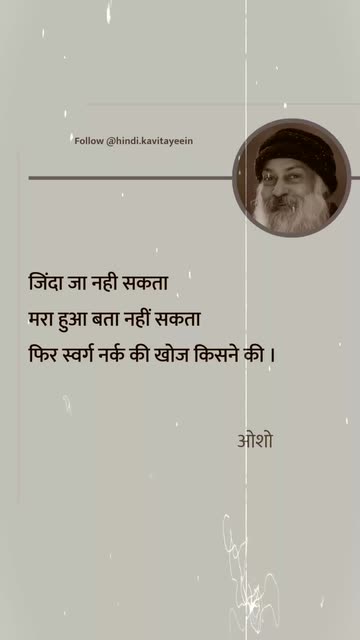 Follow @hindi.kavitayeein
जिंदा जा नही सकता
मरा हुआ बता नहीं सकता
फिर स्वर्ग नर्क की खोज किसने की ।
ओशो